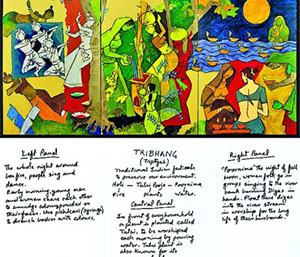 Left Panel
The whole night around
bonfire, people sing and
dance.
Early morning, young men
and women chase each other
to smudge colour powder on
their faces. Use pichkari (syringe)
to drench bodies with colours.
TRIBHANG
(Triptych)
Traditional Indian festivals
to preserve our environment.
Holi — Tulsi Pooja — Poornima
Fire Plants Water.
Central Panel
In front of every household
a plant is planted called
Tulsi, to be worshipped
each morning by pouring
water. Tulsi plant is
also known for its
Right Panel
"Poornima" the night of full
moon, women folk go in
groups singing to the river
bank holding Diyas in
hands. Float these diyas
into the river stream
in worship for the long
life of their husbands.